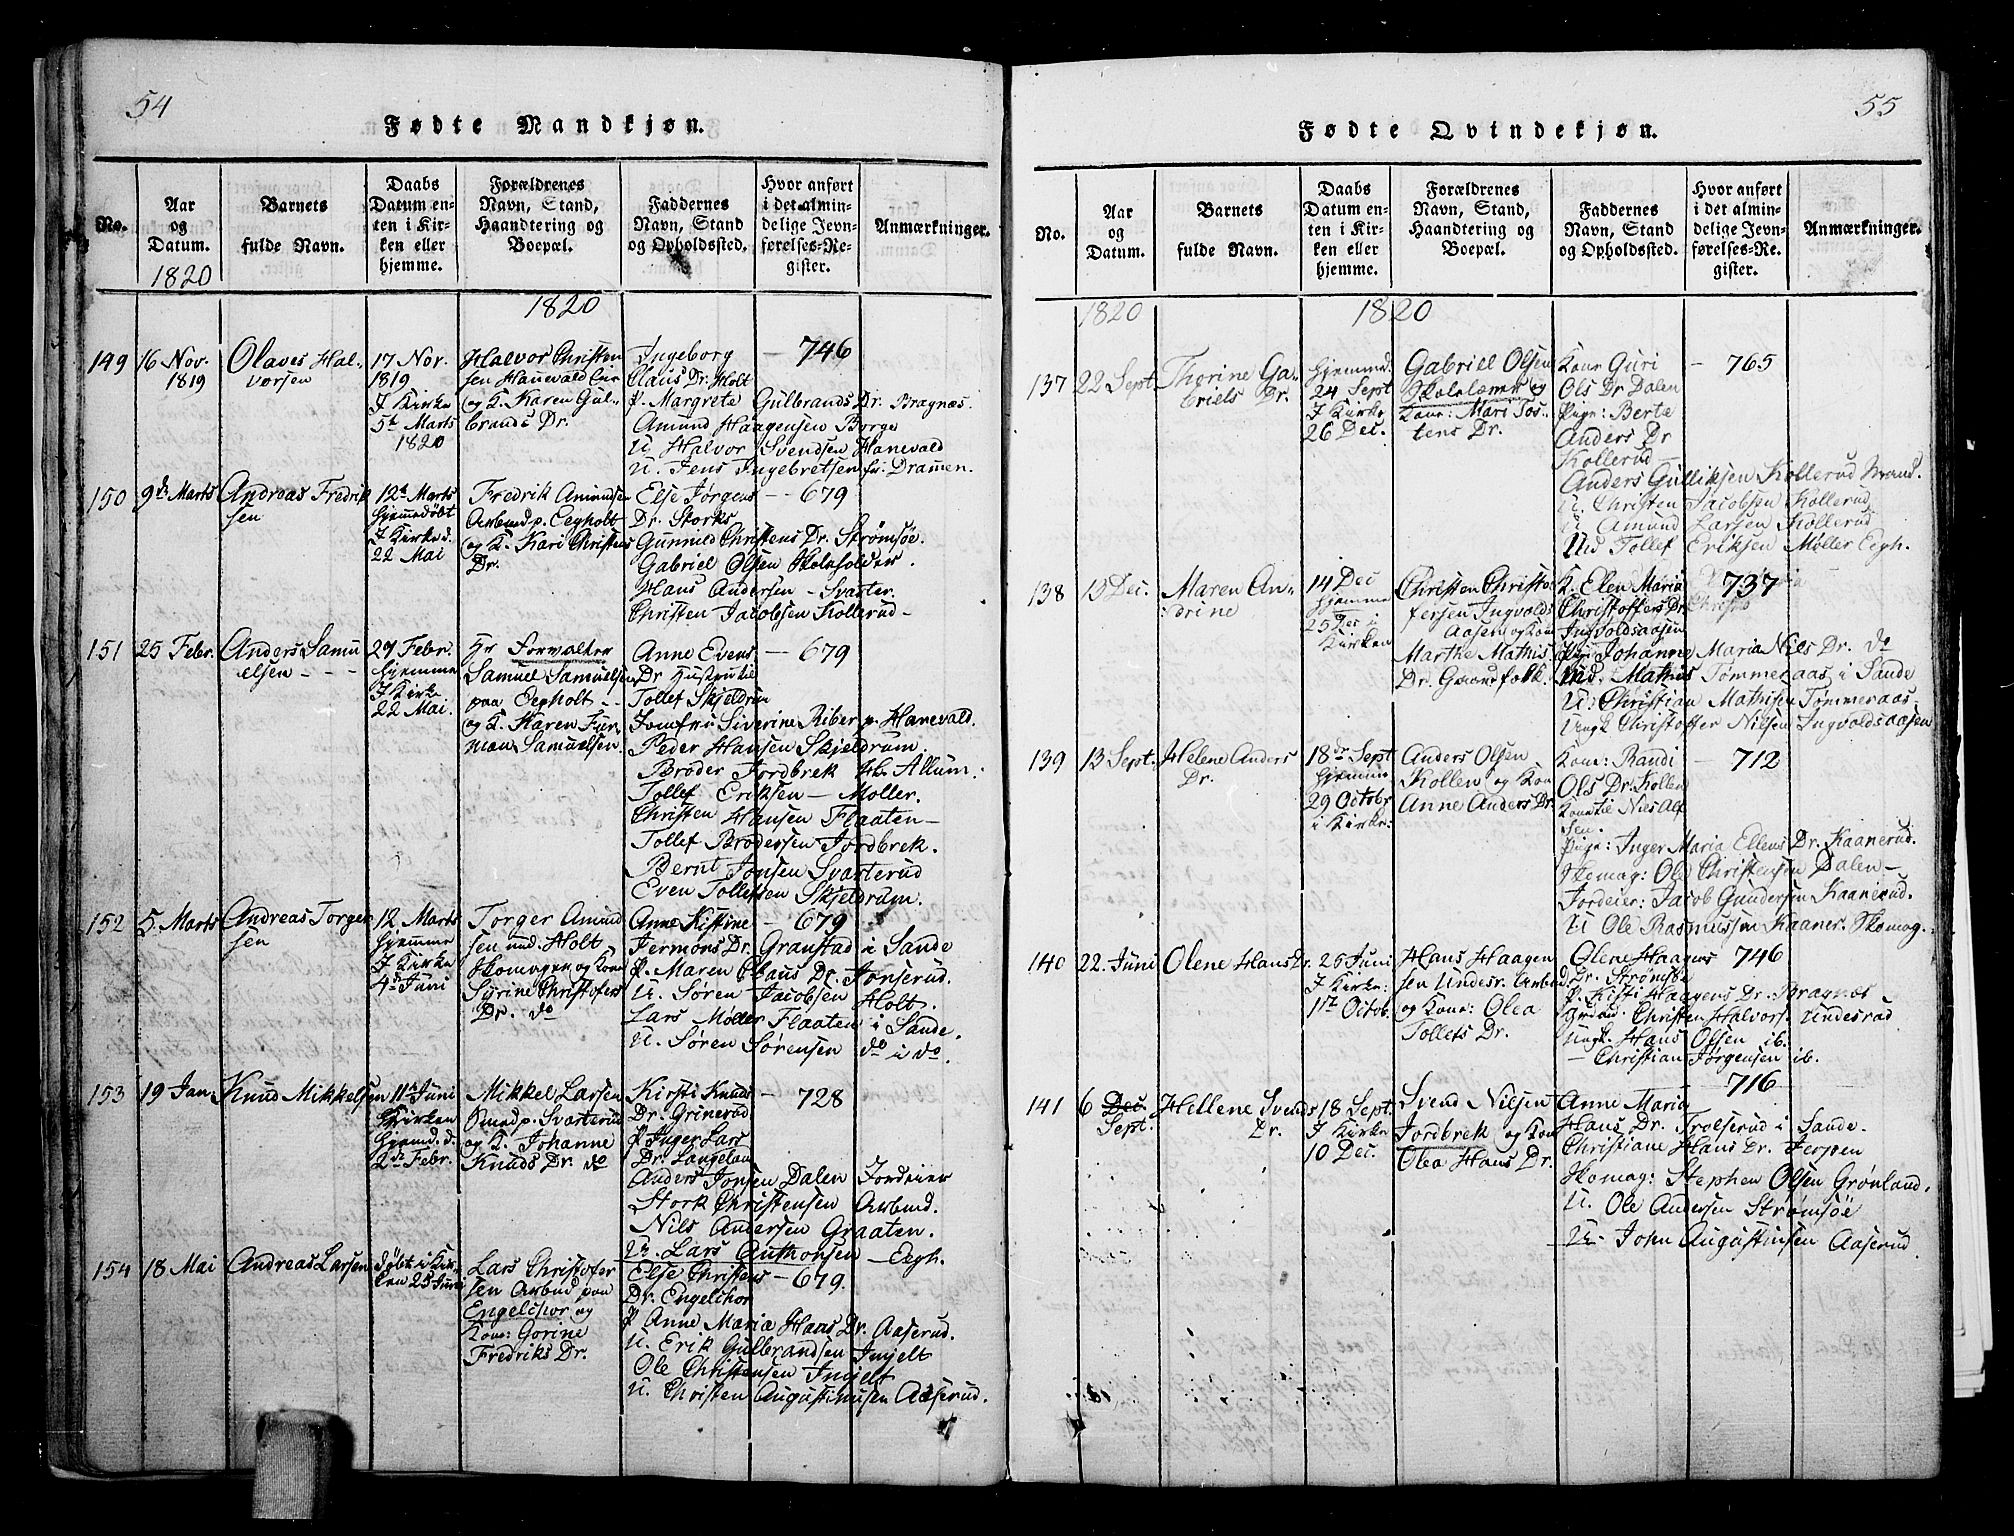 54
Fødte Mandkjøn.
No.
Aar
og
Datum.
1820
Barnets
fulde Navn.
Daabs
Datum en-
ten i Kir-
ken eller
hjemme.
Forældrenes
Navn, Stand,
Haandtering og
Boepæl.
Faddernes
Navn, Stand
og Opholdssted.
Hvor anført
i det almin-
delige Jevn-
førelses-Re-
gister.
Anmærkninger.
1820
149
16 Nov.
1819
Olaves Hal-
vorsen
17 Nov.
1819
I Kirke
5te Marts
1820
Halvor Christen
sen Hanevald
og K. Karen Gul-
brands Dr.
Ingeborg
Claus Dr. Holt
P. Margrete Gulbrands Dr. Bragnæs.
Amund Haagensen Borge
U. Halvor Svendsen Hanevald
U. Jens Ingebretsen fr. Drammen.
746
150
9de Marts
Andreas Fredrik
sen
12te Marts
hjemmedøbt
I Kirke d.
22 Mai
Fredrik Amundsen
Arbmd p. Eegholt
og K. Kari Christens
Dr.
Else Jørgens
Dr. Storks
Gunnild Christens Dr. Strømsøe.
Gabriel Olsen Skoleholder.
Hans Andersen - Svarter.
Christen Jacobsen Kollerud -
679
151
25 Febr.
Anders Samu
elsen - - -
27 Febr.
hjemme
I Kirke
22 Mai.
Hr Forvalter
Samuel Samuelsen
paa Eegholt - -
og K. Karen Fur-
man Samuelsen.
Anne Evens
Dr Hustru til
Tollef Skjeldrum
Jomfru Siverine Riber p. Hanevald.
Peder Hansen Skjeldrum.
Brøder Jordbrek Allum.
Tollef Eriksen - Møller.
Christen Hansen Flaaten -
Tollef Brødersen Jordbrek.
Bernt Jonsen Svarterud
Even Tollefsen Skjeldrum.
679
152
5 Marts
Andreas Torger
sen
12 Marts
hjemme
I Kirke
4de Juni
Torger Amund
sen und. Holt
Skomager og Kone
Syrine Christofers
Dr. do
Anne Kistine
Jermons Dr. Granstad i Sande
P. Maren Claus Dr. Jonserud.
U. Søren Jacobsen Holt.
Lars Møller Flaaten i Sande.
U. Søren Sørensen do i do.
679
153
19 Jan.
Knud Mikkelsen
11te Juni
I Kirken
hjemd. d.
2de Febr.
Mikkel Larsen
p. Svarterud
og K. Johanne
Knuds Dr. do
Kirsti Knuds
Dr. Grinerud
P Inger Lars
Dr. Langelan
Anders Jonsen Dalen Jordeier
Stork Christensen Arbmd.
Nils Andersen Graaten.
U. Lars Anthonsen - Eegh.
728
154
18 Mai
Andreas Larsen
døbt i Kir-
ken 25 Juni
Lars Christofer
sen Arbmd paa
Engelchor og
Kone: Gorine
Fredriks Dr.
Else Christens
Dr. Engelchor
P Anne Maria Hans Dr. Aaserud.
U. Erik Gulbrandsen Injelt
Ole Christensen Injelt
U. Christen Augustinusen Aaserud.
679.
55
Fødte Qvindekjøn.
No.
Aar
og
Datum.
Barnets
fulde Navn.
Daabs
Datum en-
ten i Kir-
ken eller
hjemme.
Forældrenes
Navn, Stand,
Haandtering og
Boepæl.
Faddernes
Navn, Stand
og Opholdssted.
Hvor anført
i det almin-
delige Jevn-
førelses-Re-
gister.
Anmærkninger.
1820
1820
137
22 Sept.
Thorine Ga-
briels Dr.
hjemmed.
24 Sept
I Kirke
26 Dec.
Gabriel Olsen
Skolelærer og
Kone: Mari Tos-
tens Dr.
Kone Guri
Ols Dr Dalen
Pige: Berte
Anders Dr
Kollerud
Anders Gulliksen Kollerud Mand.
U. Christen Jacobsen Kollerud
U. Amund Larsen Kollerud
Und Tollef Eriksen Møller Eegh.
765
138
13 Dec.
Maren An-
drine
14 Dec
hjemme
25 Dec i
Kirken
Christen Christo
fersen Ingvolds
Aasen og Kone
Marthe Mathis
Dr. Gaardfolk.
K. Elen Maria
Christoffers Dr.
Ingvoldsaasen
Pige Johanne Maria Nils Dr. do
Und. Mathis Tømmeraas i Sande
U. Christian Mathisen Tømmeraas.
Ungk Christoffer Nilsen Ingvoldsaasen
737
139
13 Sept.
Helene Anders
Dr.
18de Sept
hjemme
29 Octobr
i Kirke:
Anders Olsen
Kollen og Kone
Anne Anders Dr.
Kone: Randi
Ols Dr. Kollen
Kone til Niels Alf
sen.
Pige: Inger Maria Ellens Dr. Kaanerud.
Skomag: Ole Christensen Dalen -
Jordeier: Jacob Gundersen Kaanerud.
U Ole Rasmussen Kaaner. Skomag.
712
140
22. Juni
Olene Hans Dr.
25 Juni
I Kirke:
11te Octob.
Hans Haagen
sen Undesr. Arbmd.
og Kone: Olea
Tollefs Dr.
Olene Haagens
Dr. Strømsøe
P. Kisti Haagens Dr. Bragnæs
Christen Halvors. Undesrud
Ungk. Hans Olsen ib.
- Christian Jørgensen ib.
746
141
6 Dec.
Sept.
Hellene Svends
Dr.
18 Sept.
I Kirke
10 Dec.
Svend Nilsen
Jordbrek og Kone
Olea Hans Dr.
Anne Maria
Hans Dr. Trolserud i Sande.
Christiane Hans Dr. Jerpen
Skomag: Stephen Olsen Grønland.
U. Ole Andersen Strømsøe
U. John Augustinsen Aaserud.
716